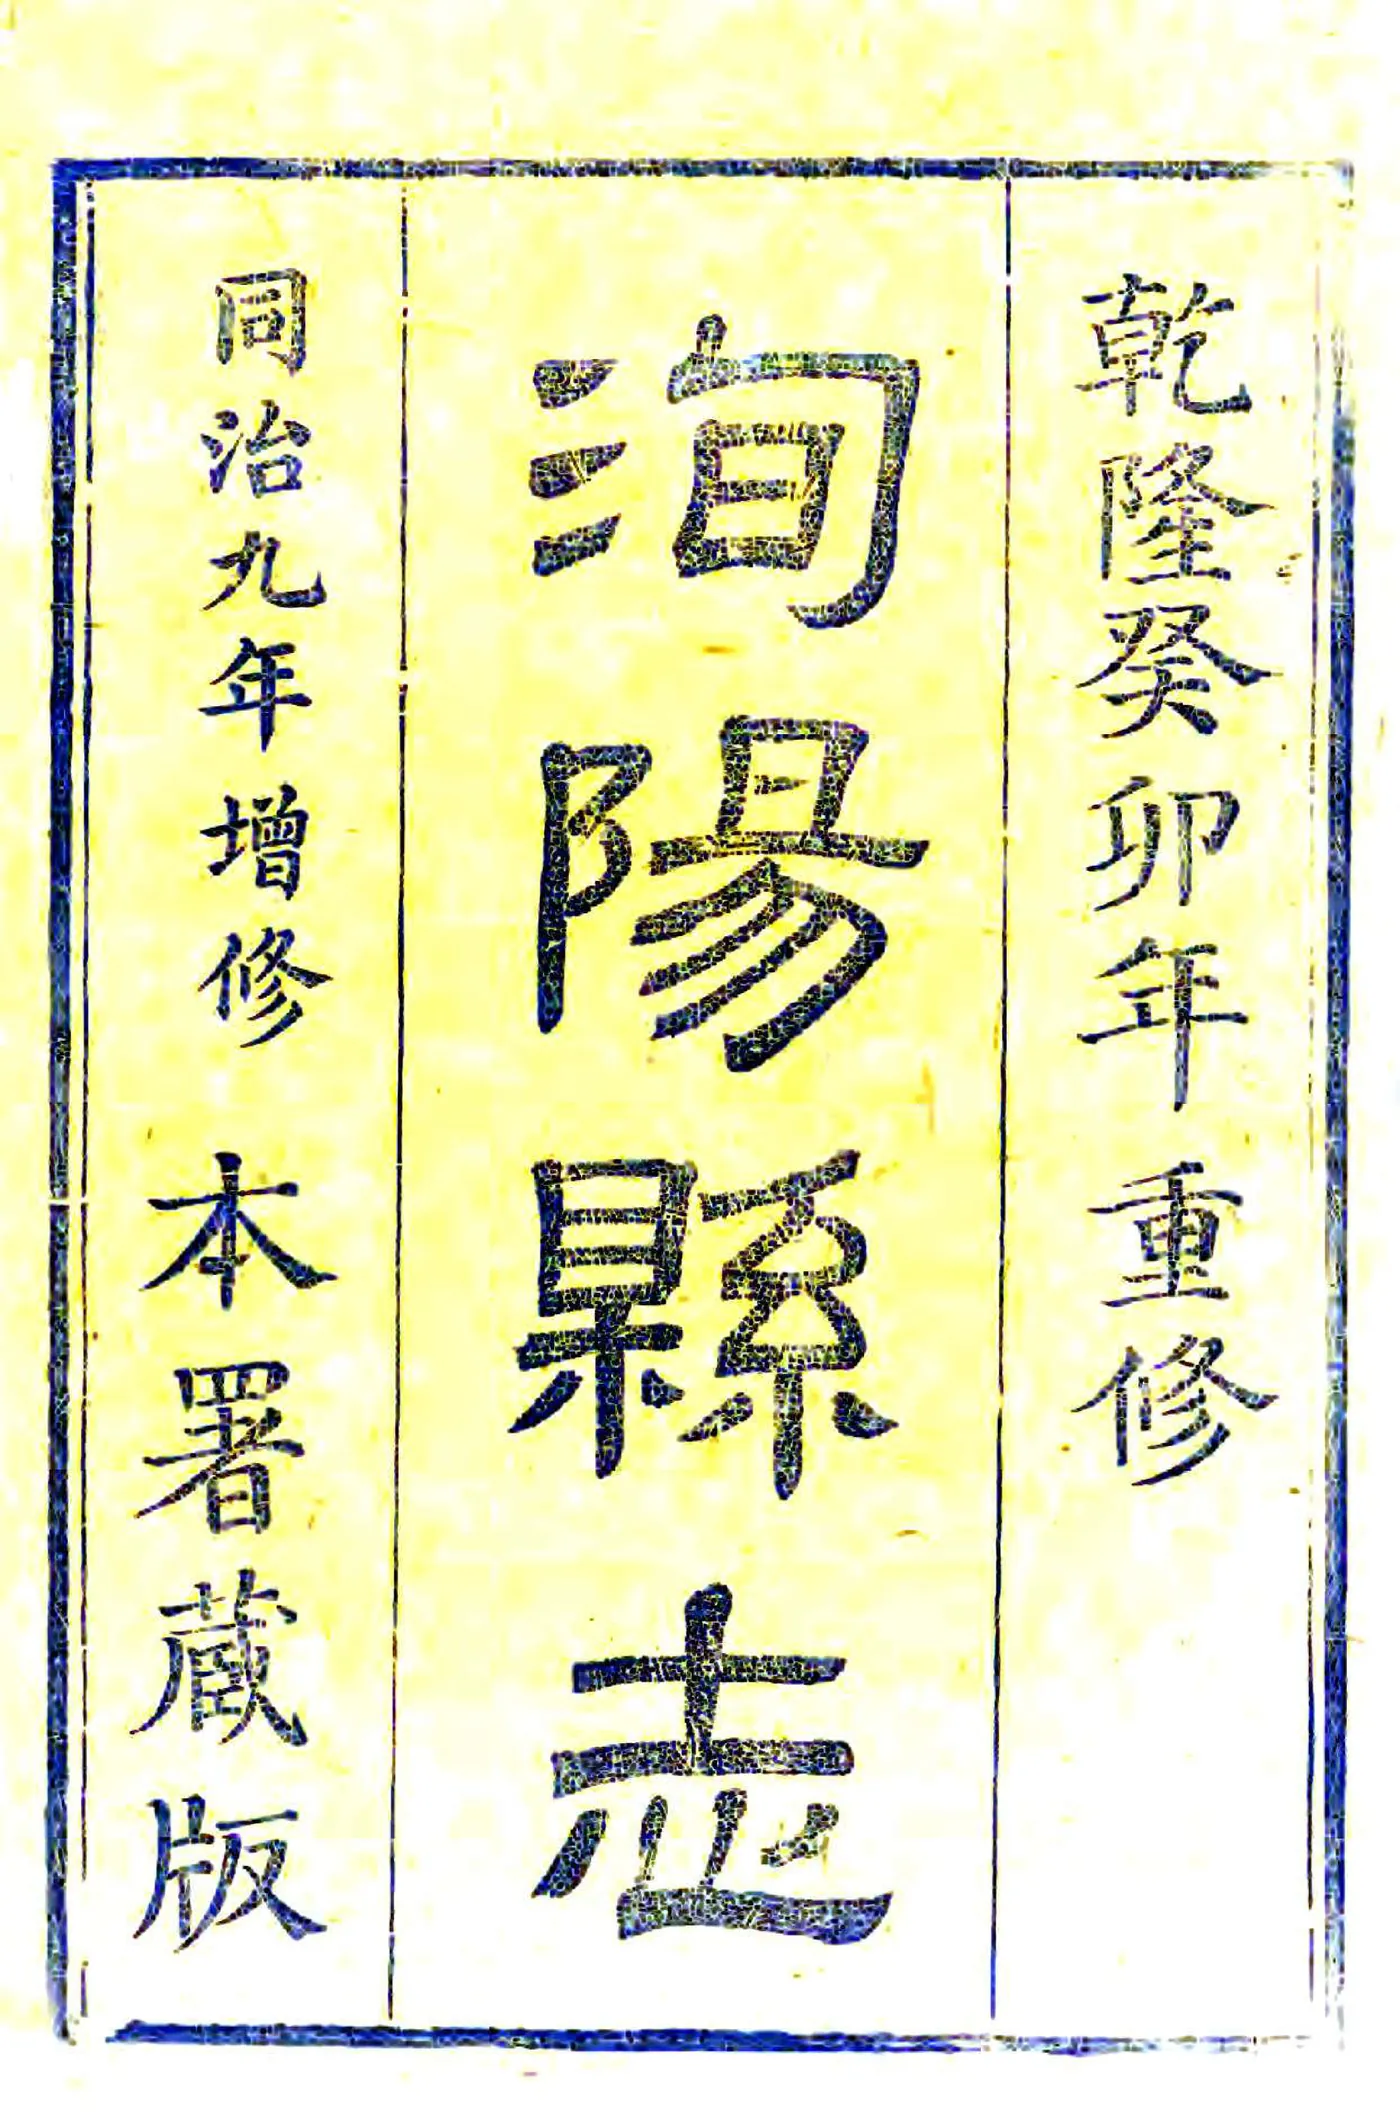 乾隆癸卯年重修
洵陽縣志
同治九年增修 本署藏版